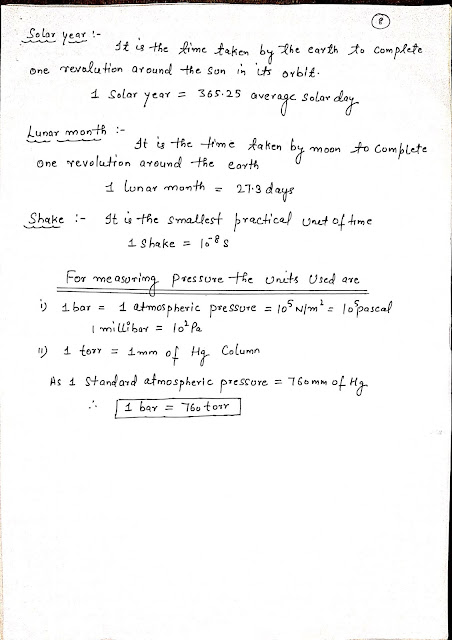 8
Solar year :-
It is the time taken by the earth to complete
one revolution around the Sun in its orbit.
1 Solar year = 365.25 average solar day
Lunar month :-
It is the time taken by moon to complete
one revolution around the earth
1 lunar month = 27.3 days
Shake :- It is the smallest practical unit of time
1 shake = 10⁻⁸ s
For measuring pressure the units used are
i) 1 bar = 1 atmospheric pressure = 10⁵ N/m² = 10⁵ pascal
1 millibar = 10² Pa
ii) 1 torr = 1mm of Hg Column
As 1 Standard atmospheric pressure = 760mm of Hg
∴ 1 bar = 760 torr